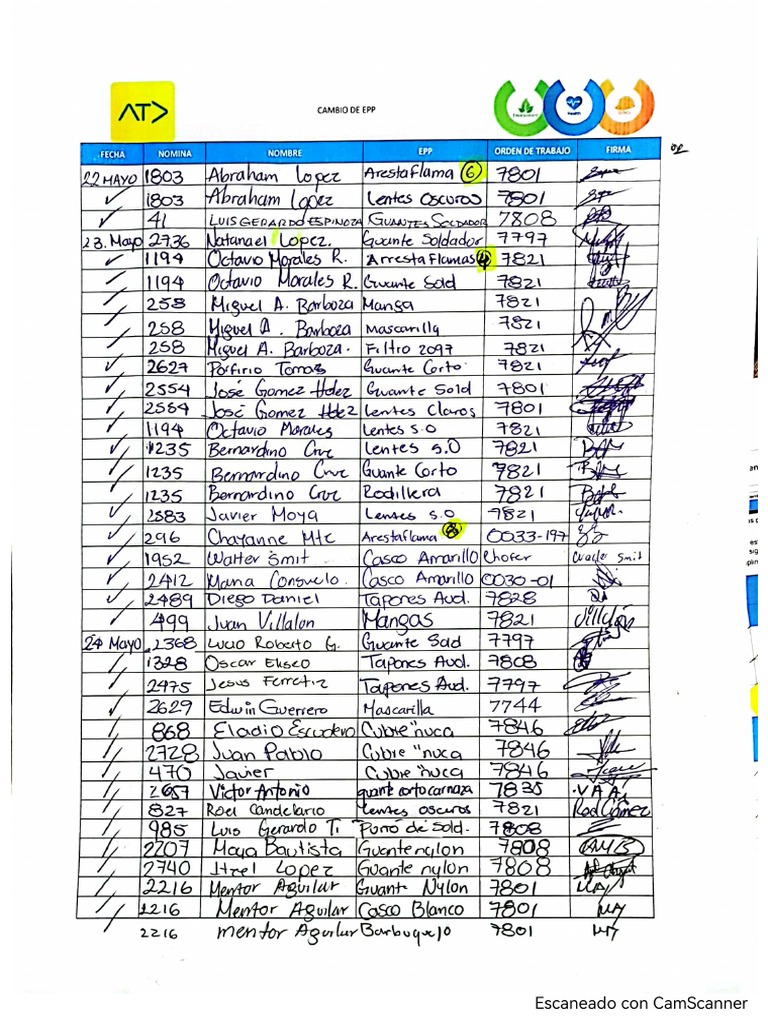 ATD
CAMBIO DE EPP
Environment Health
FECHA NOMINA NOMBRE EPP ORDEN DE TRABAJO FIRMA
22 MAYO 1803 Abraham Lopez Arestaflama 6 7801
1803 Abraham Lopez Lentes Oscuros 7801
41 LUIS GERARDO ESPINOZA GUANTES SOLDADOR 7808
23. Mayo 2736 Natanael Lopez. Guante Soldador 7797
1194 Octavio Morales R. Arrestaflamas 4 7821
1194 Octavio Morales R. Guante Sold 7821
258 Miguel A. Barboza Manga 7821
258 Miguel A. Barboza Mascarilla 7821
258 Miguel A. Barboza. Filtro 2097 7821
2627 Porfirio Tomas Guante Corto 7821
2554 José Gomez Hdez Guante Sold 7801
2554 José Gomez Hdez Lentes Claros 7801
1194 Octavio Morales Lentes S.O 7821
1235 Bernardino Cruz Lentes S.O 7821
1235 Bernardino Cruz Guante Corto 7821
1235 Bernardino Cruz Rodillera 7821
2583 Javier Moya Lenses S.O 7821
296 Chayanne Mtc Arestaflama 8 0033-197
1952 Walter Smit Casco Amarillo Chofer Walter Smit
2412 Maria Consuelo. Casco Amarillo 0030-01
2489 Diego Daniel Tapones Aud. 7828
499 Juan Villalon Mangas 7821 Villalón
24 Mayo 2368 Lucio Roberto G. Guante Sad 7797
1328 Oscar Eliseo Tapones Aud. 7808
2475 Jesus Ferretiz Tapones Aud. 7797
2629 Edwin Guerrero Mascarilla 7744
868 Eladio Escudero Cubre "nuca 7846
2728 Juan Pablo Cubre "nuca 7846
470 Javier Cubre "nuca 7846
2657 Victor Antonio guante corto carnaza 7835 .V A A.
827 Roel Candelario Lentes oscuros 7821
985 Luis Gerardo T. Puro de Sold. 7808
2207 Maya Bautista Guante nylon 7808
2740 Itzel Lopez Guante nylon 7808
2216 Mentor Aguilar Guant Nylon 7801 MA
2216 Mentor Aguilar Casco Blanco 7801 MA
2216 mentor Aguilar Barbuquejo 7801 MA
Escaneado con CamScanner